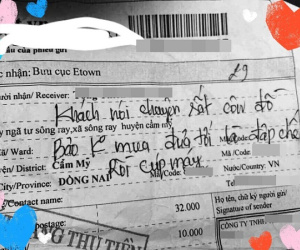 của phiếu gửi
nhận: Bưu cục Etown
29
ười nhận/ Receiver:
Khách nói chuyện rất côn đồ
y ngã tư sông ray,xã sông ray huyện cẩm mỹ
Mã/Code:
Bảo k mua đuổi tới đập chế
xã/ Ward:
Mã /Code:
yện/ District: Cẩm Mỹ
Rồi cup máy
Nước/Country: VN
/City/Province: ĐỒNG NAI
Mã/Code:
Tel
Contact name:
32.000
Họ tên, chữ ký người gửi/
Signature of sender
postage:
10.000
CÔNG TY TNHH
G THU TIỀN